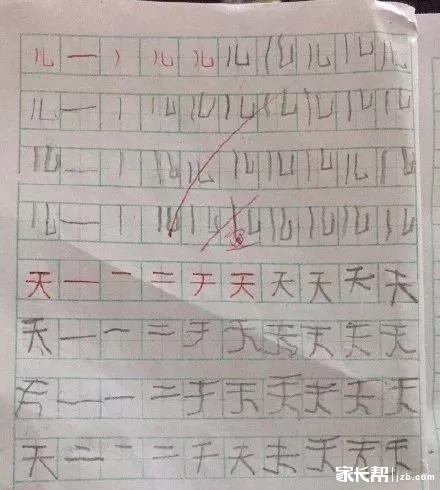 儿 一 丿 儿 儿 儿 儿 儿 儿 儿
儿 一 丿 儿 儿 儿 儿 儿 儿 儿
儿 一 丿 儿 儿 儿 儿 儿 儿 儿
儿 一 丿 儿 儿 儿 儿 儿 儿 儿
天 一 一 二 于 天 天 天 天 天
天 一 一 二 于 天 天 天 天 天
天 一 一 二 于 天 天 天 天 天
天 二 二 二 千 天 天 天 天 天
家长帮 jzb.com